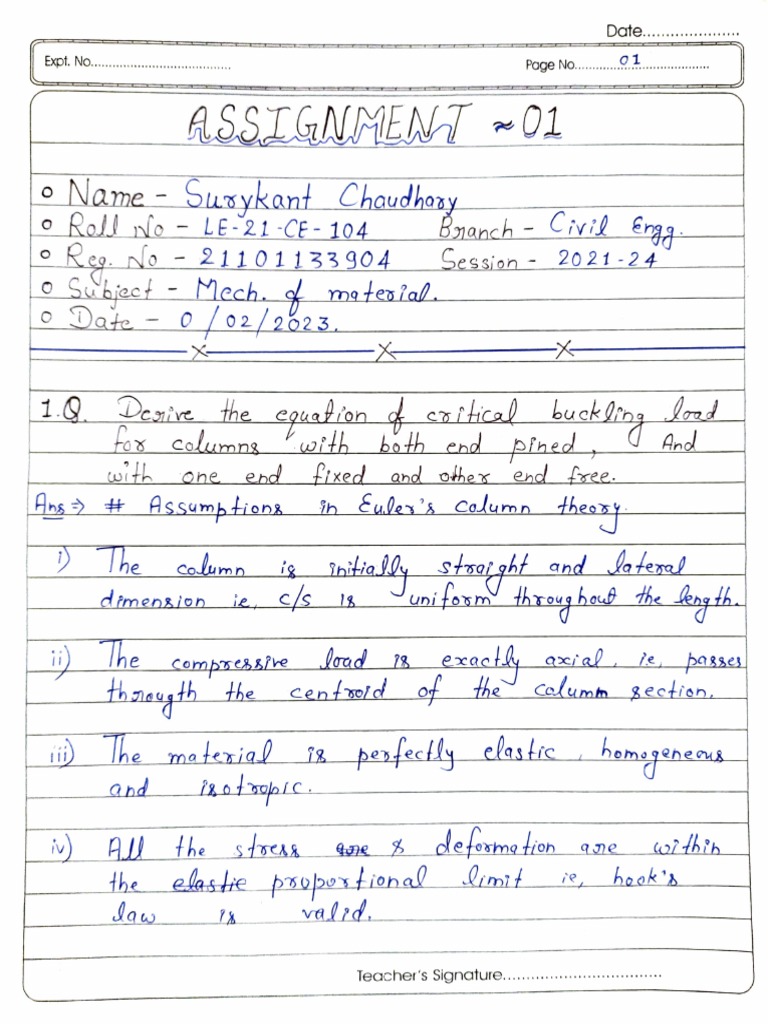 Date.....................
Expt. No.....................................
Page No............01....................
ASSIGNMENT ~01
o Name - Surykant Chaudhary
o Roll No - LE-21-CE-104 Branch - Civil Engg.
o Reg. No - 21101133904 Session - 2021-24
o Subject - Mech. of material.
o Date - 0 /02/2023.
1.Q. Derive the equation of critical buckling load
for columns with both end pined, And
with one end fixed and other end free.
Ans => # Assumptions in Euler's column theory.
i) The column is initially straight and lateral
dimension ie, c/s is uniform throughout the length.
ii) The compressive load is exactly axial, ie, passes
througth the centroid of the column section.
iii) The material is perfectly elastic, homogeneous
and isotropic.
iv) All the stress are & deformation are within
the elastic proportional limit ie, hook's
law is valid.
Teacher's Signature...................................